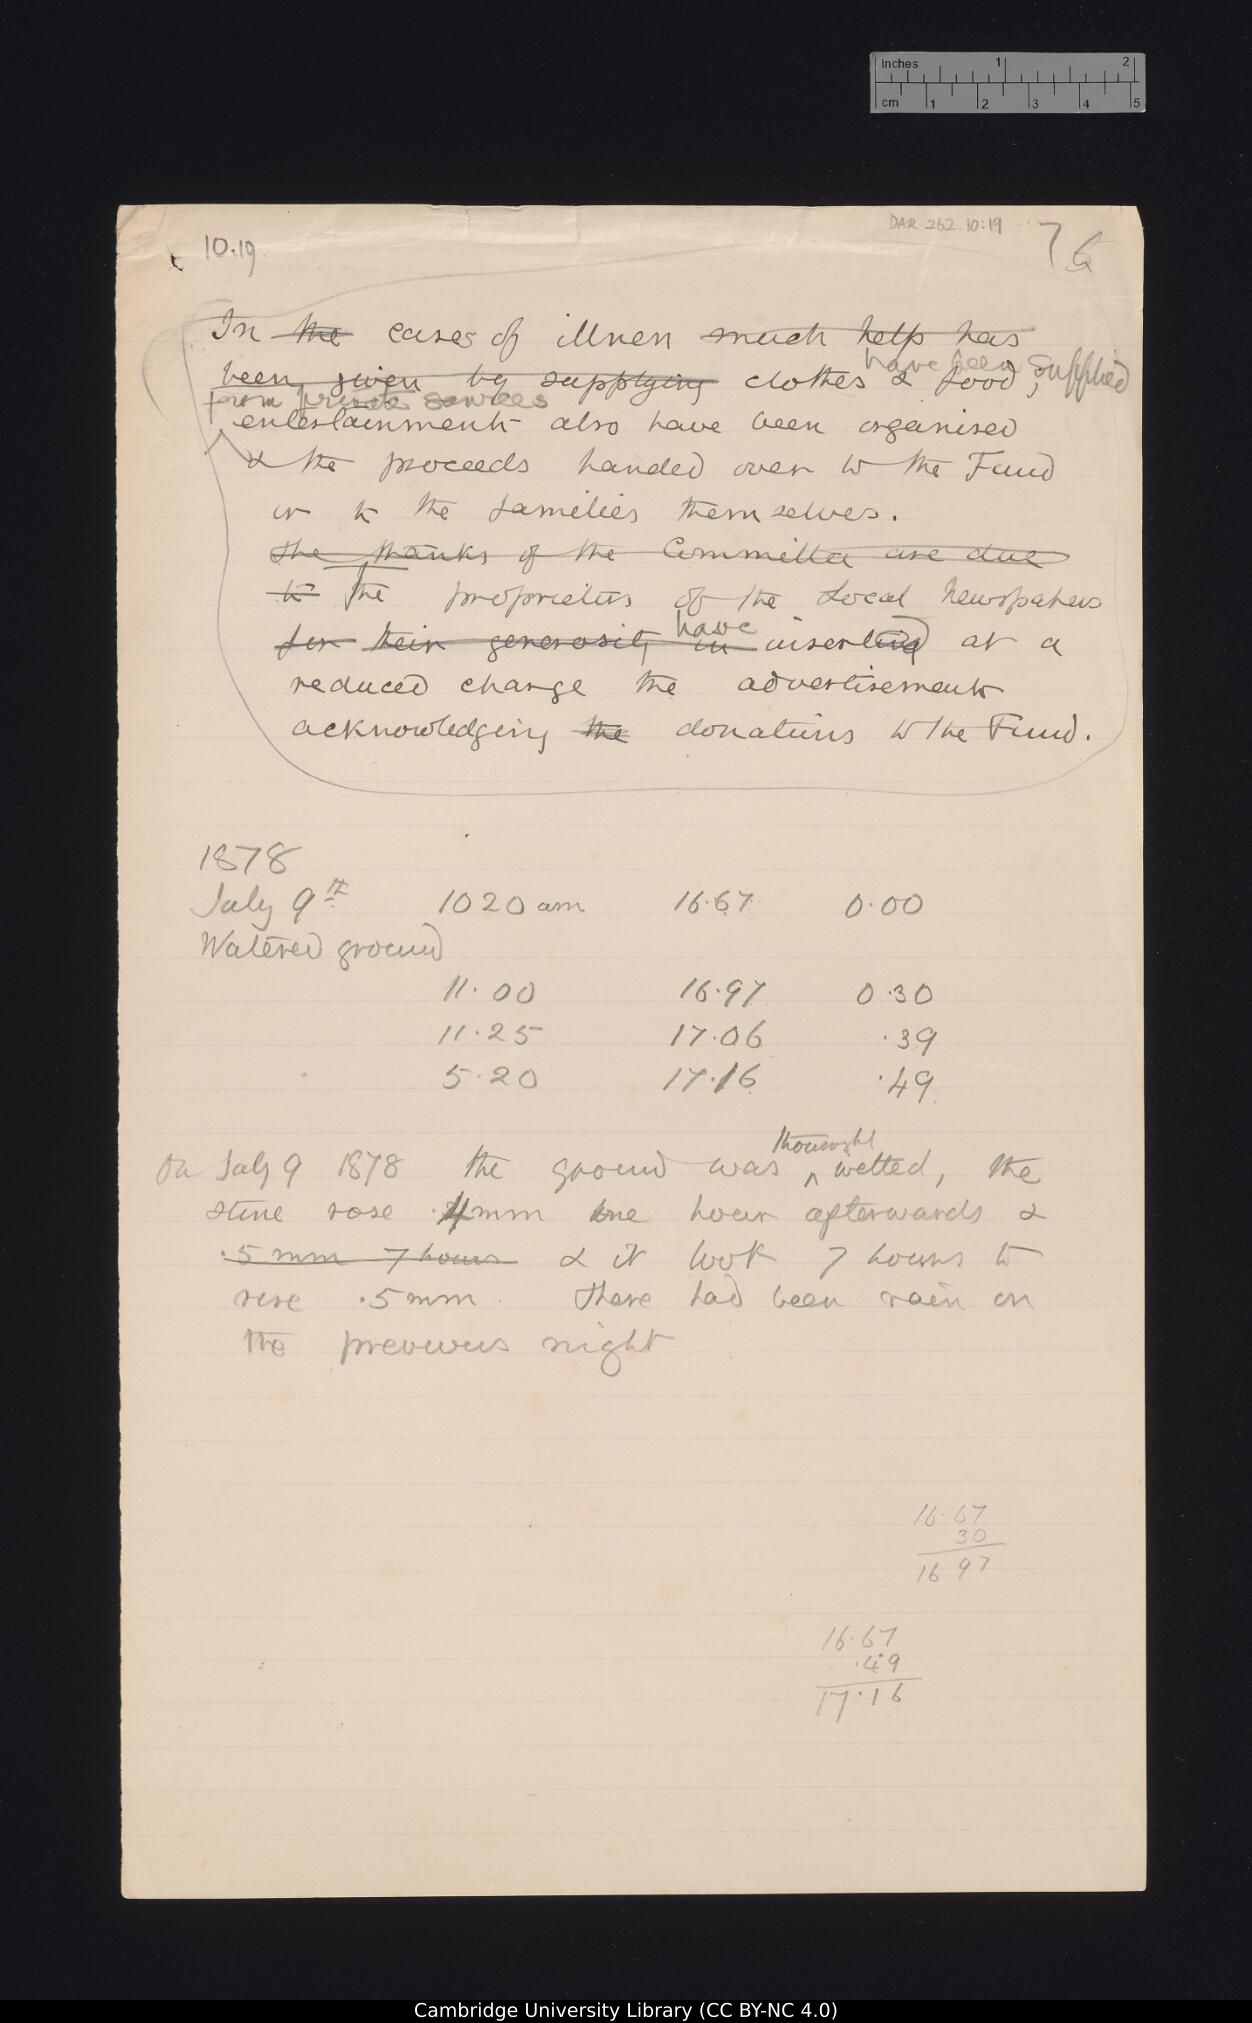 Inches 1 2
cm 1 2 3 4 5
DAR 262.10:19
10.19
7 6
In the cases of illness much help has
been given by supplying clothes & food, have been supplied
from private sources
entertainments also have been organised
& the proceeds handed over to the Fund
or to the families themselves.
The thanks of the Committee are due
to the proprietors of the Local Newspapers
for their generosity in have inserting at a
reduced charge the advertisements
acknowledging the donations to the Fund.
1878
July 9th 10 20 am 16.67 0.00
Watered ground
11.00 16.97 0.30
11.25 17.06 .39
5.20 17.16 .49
thouroghl
On July 9 1878 the ground was ^ wetted, the
stone rose .4 mm one hour afterwards &
.5 mm 7 hours & it took 7 hours to
rise .5 mm. There had been rain on
the previous night
16.67
30
16 97
16.67
.49
17.16
Cambridge University Library (CC BY-NC 4.0)